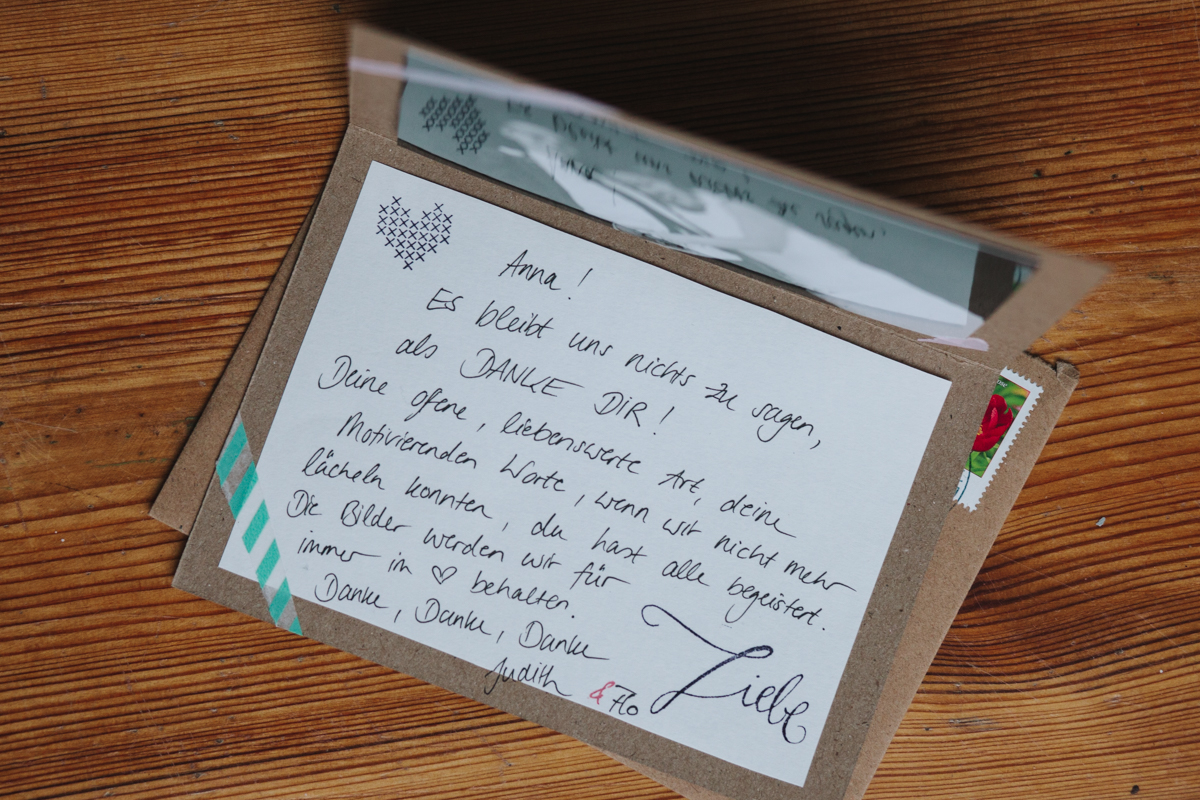 Anna!
Es bleibt uns nichts zu sagen,
als DANKE DIR!
Deine offene, liebenswerte Art, deine
Motivierenden Worte, wenn wir nicht mehr
lächeln konnten, du hast alle begeistert.
Die Bilder werden wir für
immer im ♡ behalten.
Danke, Danke, Danke
Judith & Flo
Liebe